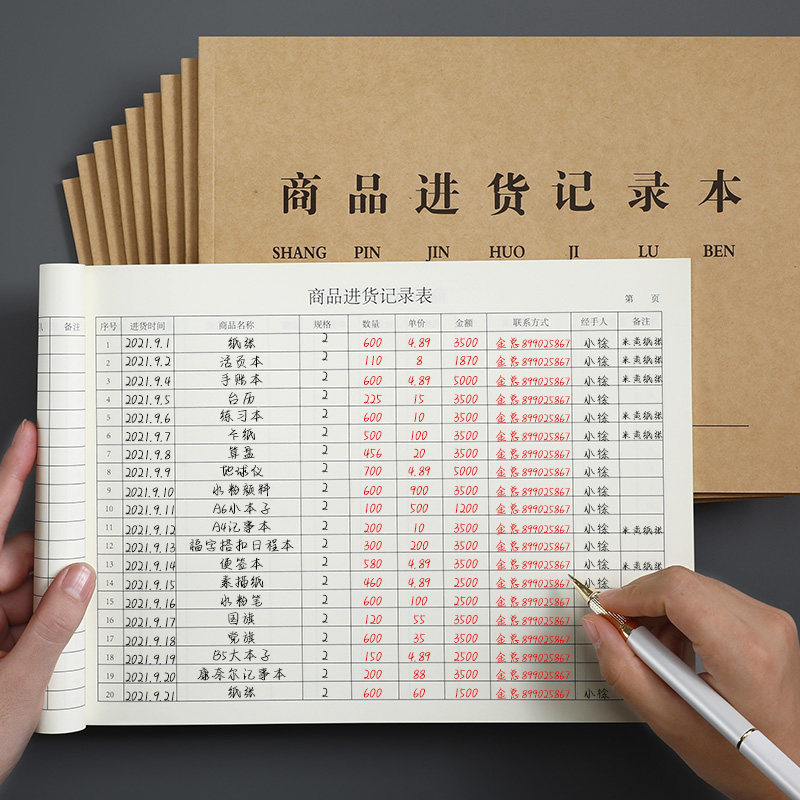 商品进货记录本
SHANG PIN JIN HUO JI LU BEN
商品进货记录表
第 页
备注
序号 进货时间 商品名称 规格 数量 单价 金额 联系方式 经手人 备注
1 2021.9.1 纸张 2 600 4.89 3500 899025867 小徐 米黄纸张
2 2021.9.2 活页本 2 110 8 1870 899025867 小徐 米黄纸张
3 2021.9.4 手账本 2 600 4.89 5000 899025867 小徐 米黄纸张
4 2021.9.5 台历 2 225 15 3500 899025867 小徐
5 2021.9.6 练习本 2 600 10 3500 899025867 小徐 米黄纸张
6 2021.9.7 卡纸 2 500 100 3500 899025867 小徐 米黄纸张
7 2021.9.8 算盘 2 456 20 3500 899025867 小徐
8 2021.9.9 地球仪 2 700 4.89 5000 899025867 小徐
9 2021.9.10 水粉颜料 2 600 900 3500 899025867 小徐
10 2021.9.11 A6小本子 2 100 500 1200 899025867 小徐
11 2021.9.12 A4记事本 2 200 10 3500 899025867 小徐 米黄纸张
12 2021.9.13 福字搭扣日程本 2 300 200 3500 899025867 小徐
13 2021.9.14 便签本 2 580 4.89 3500 899025867 小徐 米黄纸张
14 2021.9.15 素描纸 2 460 4.89 2500 899025867 小徐
15 2021.9.16 水粉笔 2 600 100 2500 899025867
16 2021.9.17 国旗 2 120 55 3500 899025867
17 2021.9.18 党旗 2 600 35 3500 899025867
18 2021.9.19 B5大本子 2 150 4.89 2500 899025867
19 2021.9.20 康奈尔记事本 2 200 88 3500 899025867 小徐
20 2021.9.21 纸张 2 600 60 1500 899025867 小徐